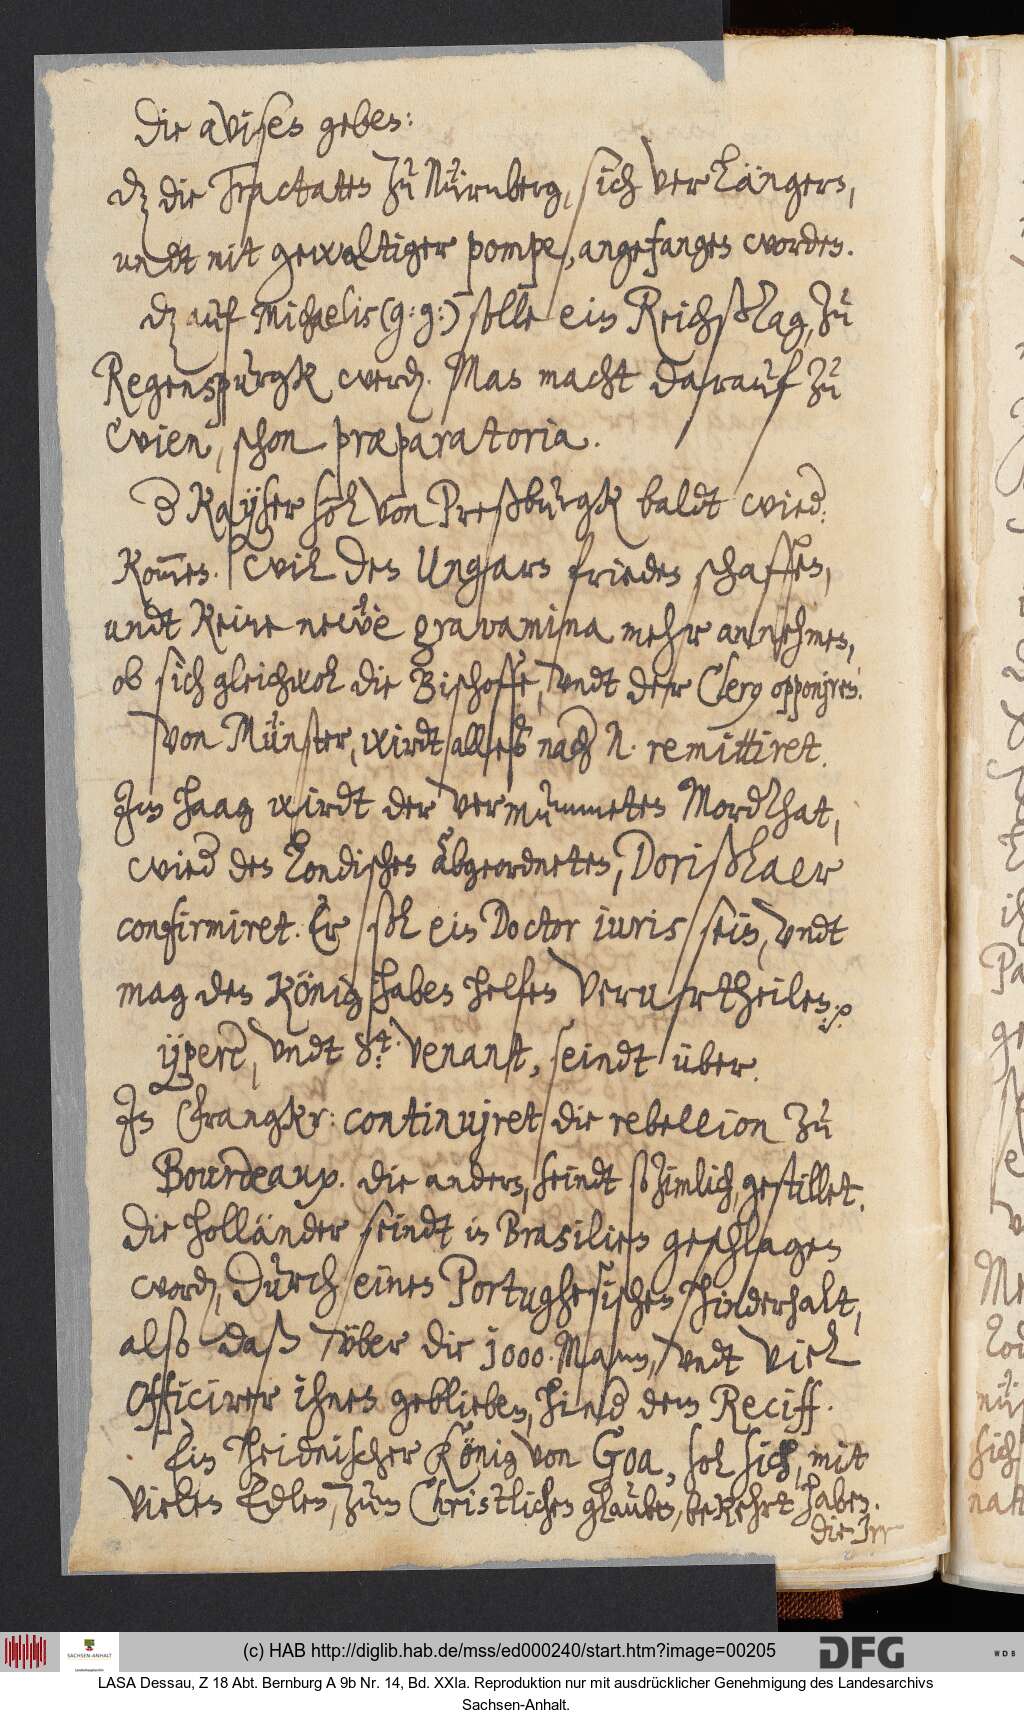 Die avisen geben:
dz die Tractaten zu Nürnberg, sich verlängern,
undt mit gewaltiger pompe, angefangen worden.
dz auf Michaelis (g: g:) solle ein Reichßtag, zu
Regenspurgk werd. Man macht darauf zu
Wien, schon præparatoria.
d Kayser sol von Preßburgk baldt wied:
kom̅en. Wil den Ungarn frieden schaffen,
undt keine newe gravamina mehr annehmen,
ob sich gleichwol die Bischoffe, undt der Clery opponiren.
Von Münster, wirdt alles nach N. remittiret.
Im Haag wirdt der vermummeten Mordthat,
wied den Londischen Abgeordneten, Dorißlaer
confirmiret. Er sol ein Doctor iuris sein, undt
mag den König haben helfen verurtheilen.
ÿpern, undt St. Venant, seindt über.
In Franckr: continuiret die rebellion zu
Bourdeaux. die andern, seindt so zimlich, gestillet.
Die Holländer seindt in Brasilien geschlagen
word, durch einen Portughesischen hinderhalt,
also daß über die 1000. Mann, undt viel
Officirer ihnen geblieben, hind dem Reciff.
Ein Heidnischer König von Goa, sol sich, mit
vielen Edlen, zum Christlichen glauben, bekehrt haben.
die Irr
(c) HAB http://diglib.hab.de/mss/ed000240/start.htm?image=00205
SACHSEN-ANHALT
DFG
WDB
LASA Dessau, Z 18 Abt. Bernburg A 9b Nr. 14, Bd. XXIa. Reproduktion nur mit ausdrücklicher Genehmigung des Landesarchivs
Sachsen-Anhalt.